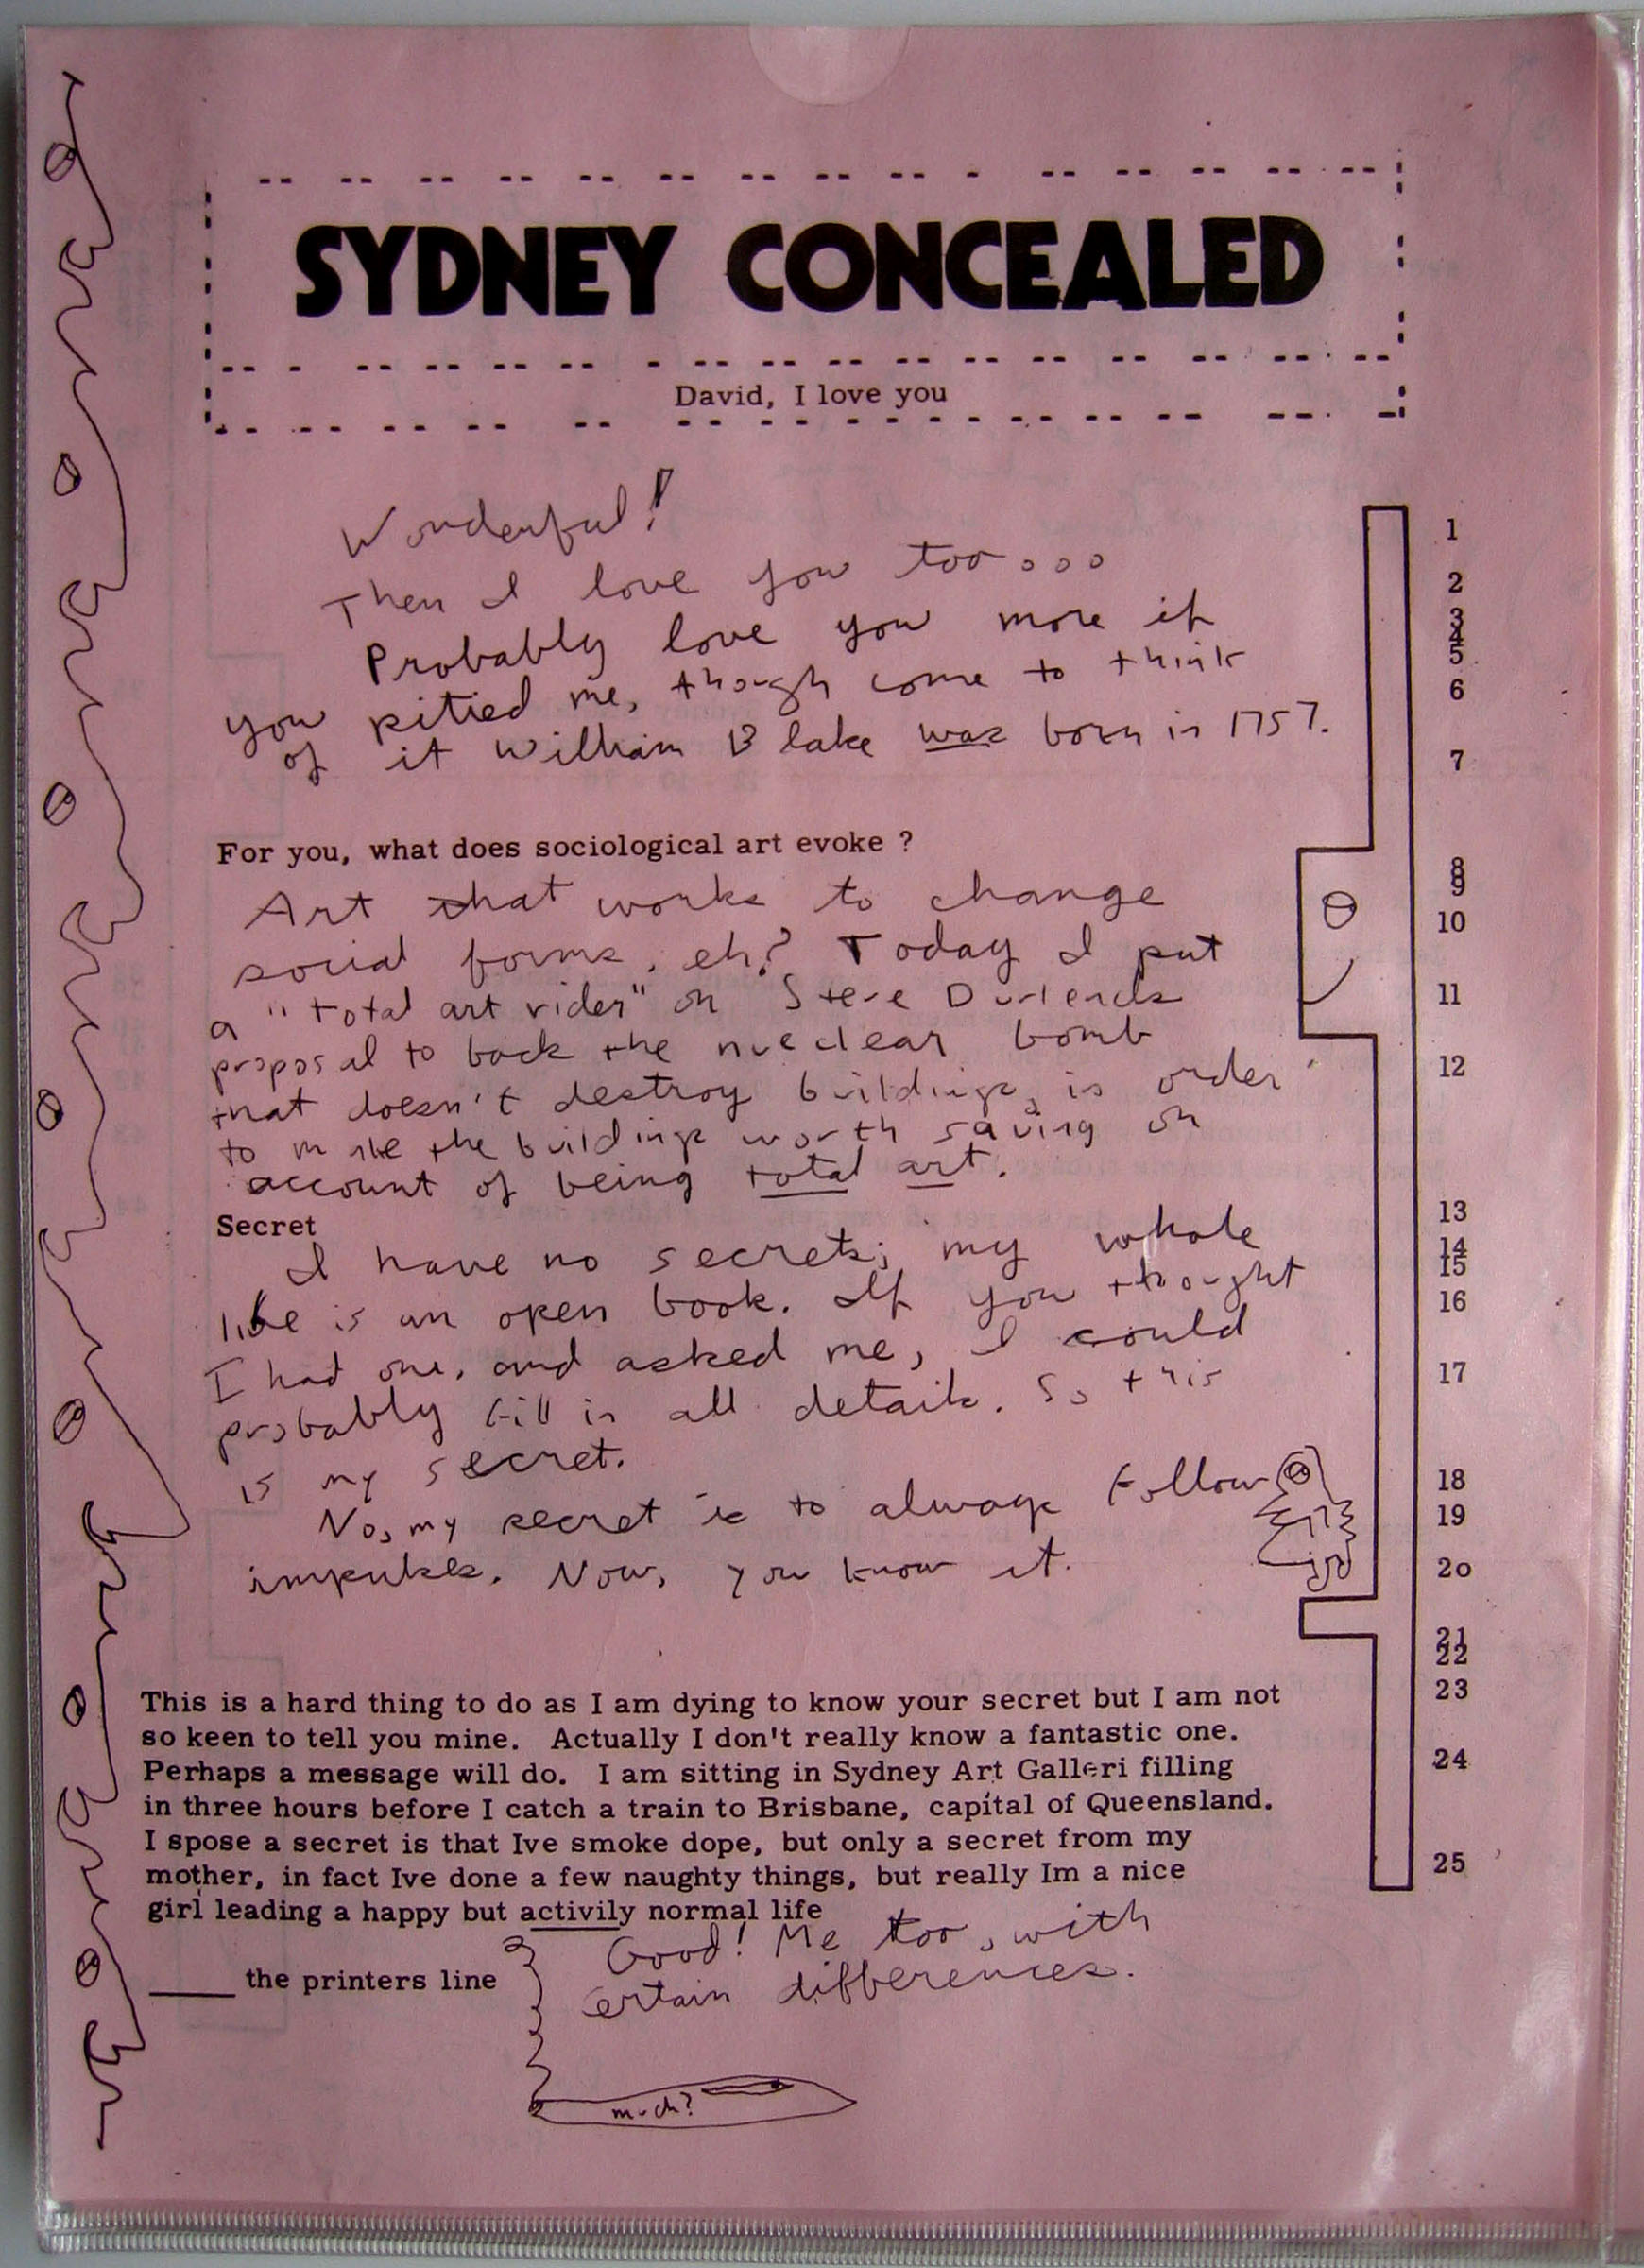 SYDNEY CONCEALED
David, I love you
Wonderful!
Then I love you too...
Probably love you more if
you pitied me, though come to think
of it William Blake was born in 1757.
For you, what does sociological art evoke ?
Art that works to change
social forms, eh? Today I put
a "total art rider" on Steve Durlends
proposal to back the nuclear bomb
that doesn't destroy buildings, in order
to make the buildings worth saving on
account of being total art.
Secret
I have no secrets; my whole
life is an open book. If you thought
I had one, and asked me, I could
probably fill in all details. So this
is my secret.
No, my secret is to always follow
impulses. Now, you know it.
This is a hard thing to do as I am dying to know your secret but I am not
so keen to tell you mine. Actually I don't really know a fantastic one.
Perhaps a message will do. I am sitting in Sydney Art Galleri filling
in three hours before I catch a train to Brisbane, capital of Queensland.
I spose a secret is that Ive smoke dope, but only a secret from my
mother, in fact Ive done a few naughty things, but really Im a nice
girl leading a happy but activily normal life
Good! Me too, with
certain differences.
____ the printers line
much?
1
2
3
4
5
6
7
8
9
10
11
12
13
14
15
16
17
18
19
20
21
22
23
24
25